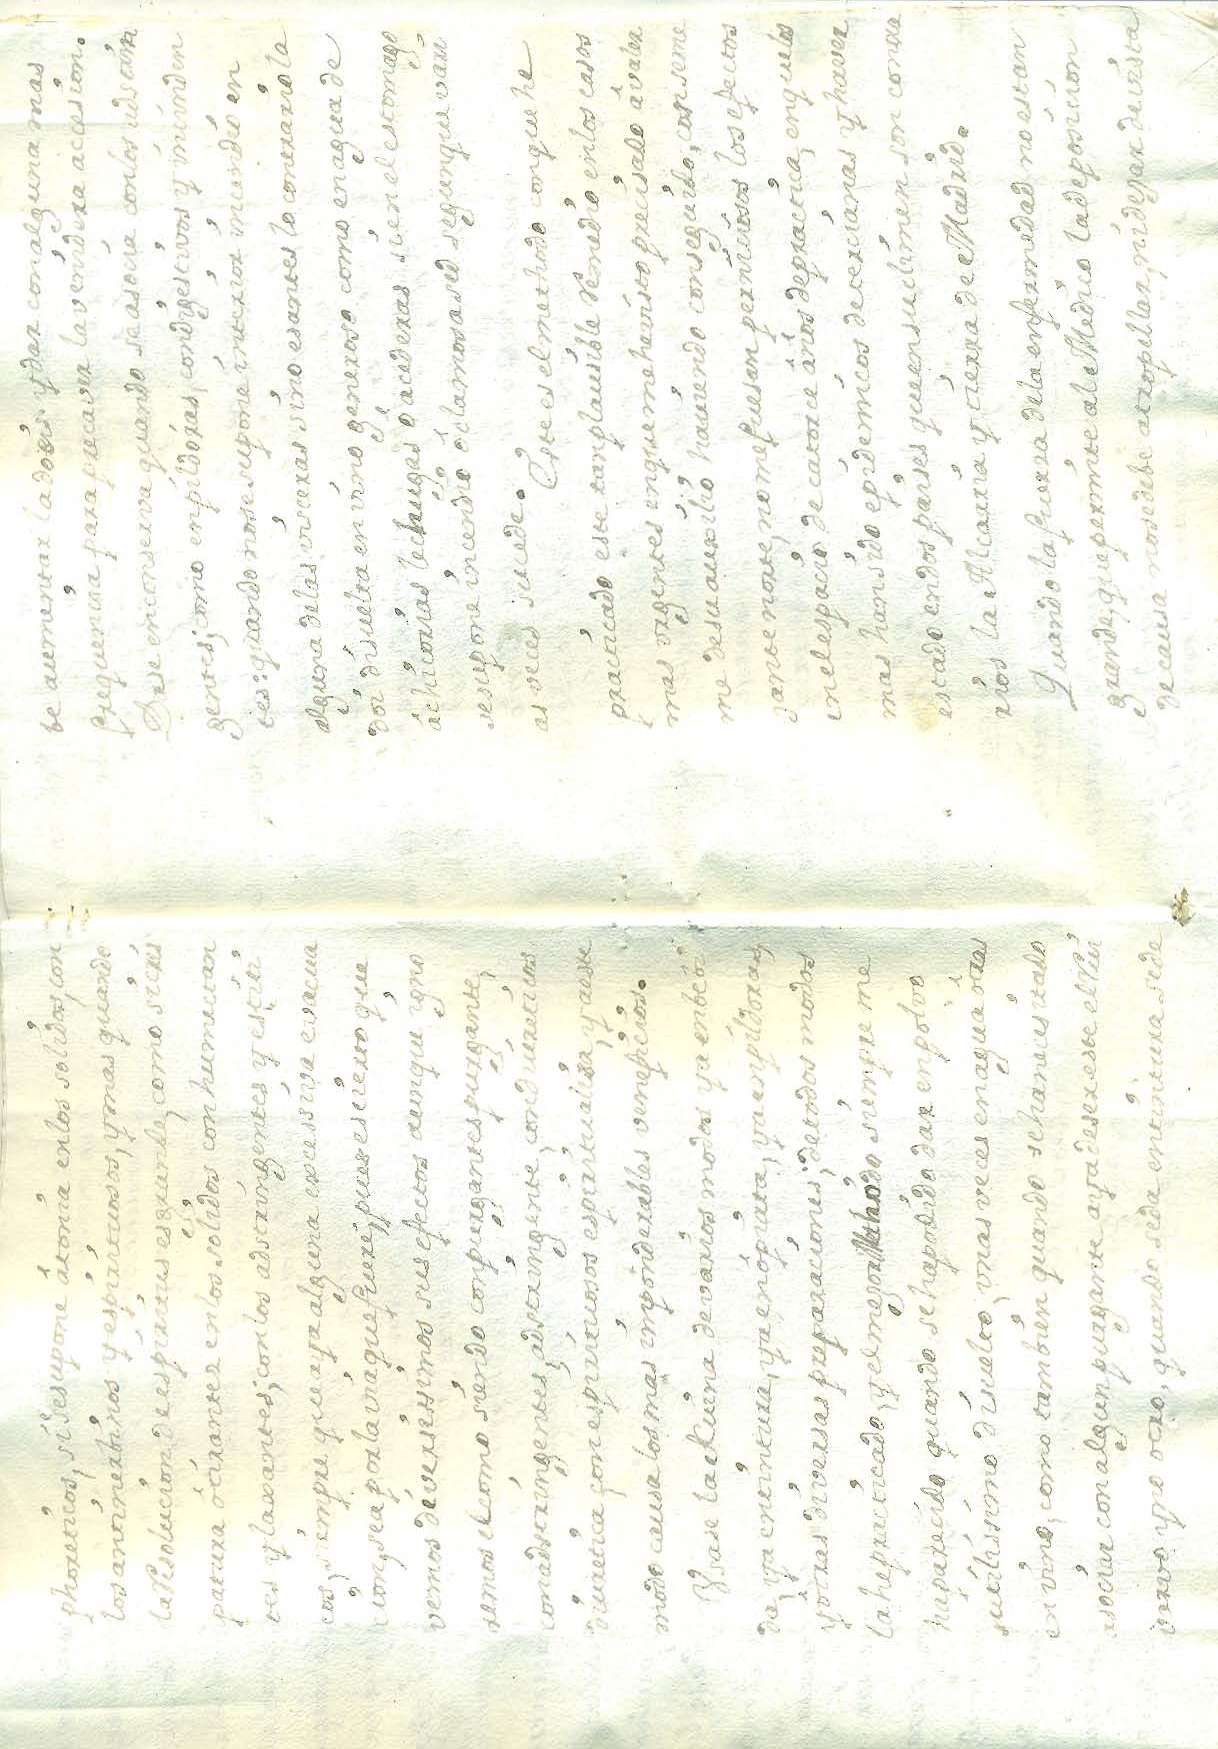 phoreticos, si se supone atonia en los solidos, con
los antinerbinos y espirituosos, y mas quando
la resolucion de espiritus es grande, como si cris
patura ó tirantez en los solidos con humectan
tes y laxantes; con los adstringentes y esticti
cos, siempre que aya alguna excessiva evacua
cion, sea por la via que fuere, pues es cierto que
vemos deversissimos sus efectos aunque igno
remos el como siendo con purgantes purgante,
con adstringentes, adstringente, con diureticos
diuretica, con espirituosos espirituosa, y a este
modo causa los mas imponderables veneficios.
Usase la Kuina de varios modos ya en bevi
da, ya en tintura, ya en opiata, ya en pildoras,
y otras diversas preparaciones; de todos modos
la he practicado, y el mejor Methodo siempre me
ha parecido quando se ha podido dar en polvo
sutilissimo disuelto, unas veces en agua otras
en vino, como tambien quando se ha necesitado
asociar con algun purgante ayudase este el
verno y no otro, quando se da en tintura se de
be aumentar la dosis y dar con alguna mas
frequencia para precavir la venidera accesion.
Dase en conserva quando se asocia con los
gentes; como en pildoras, con digestivos y
tes: quando no se supone interior incendio en
alguna de las visceras sino es antes lo contrario la
doi disuelta en vino generoso como en agua de
achicorias lechugas ó acederas si en el estomago
se supone incendio ó clamorosa sed segun que vari
as veces sucede. Este es el methodo con que he
practicado este tan plausible Remedio en los casos
mas urgentes en que me ha visto precisado á valer
me de su auxilio haviendo conseguido, con seme
jante norte, no me fuesen perniciosos los efectos
en el espacio de catorce años de practica, en que los
mas han sido epidemicos de tercianas y haver
estado en dos paises que en su clima son contra
rios la Alcarria y tierra de Madrid.
Quando la fuerza de la enfermedad no es tan
grande, que permite al Medico la deposicion
de causa no se debe atropellar, ni dejar de vista